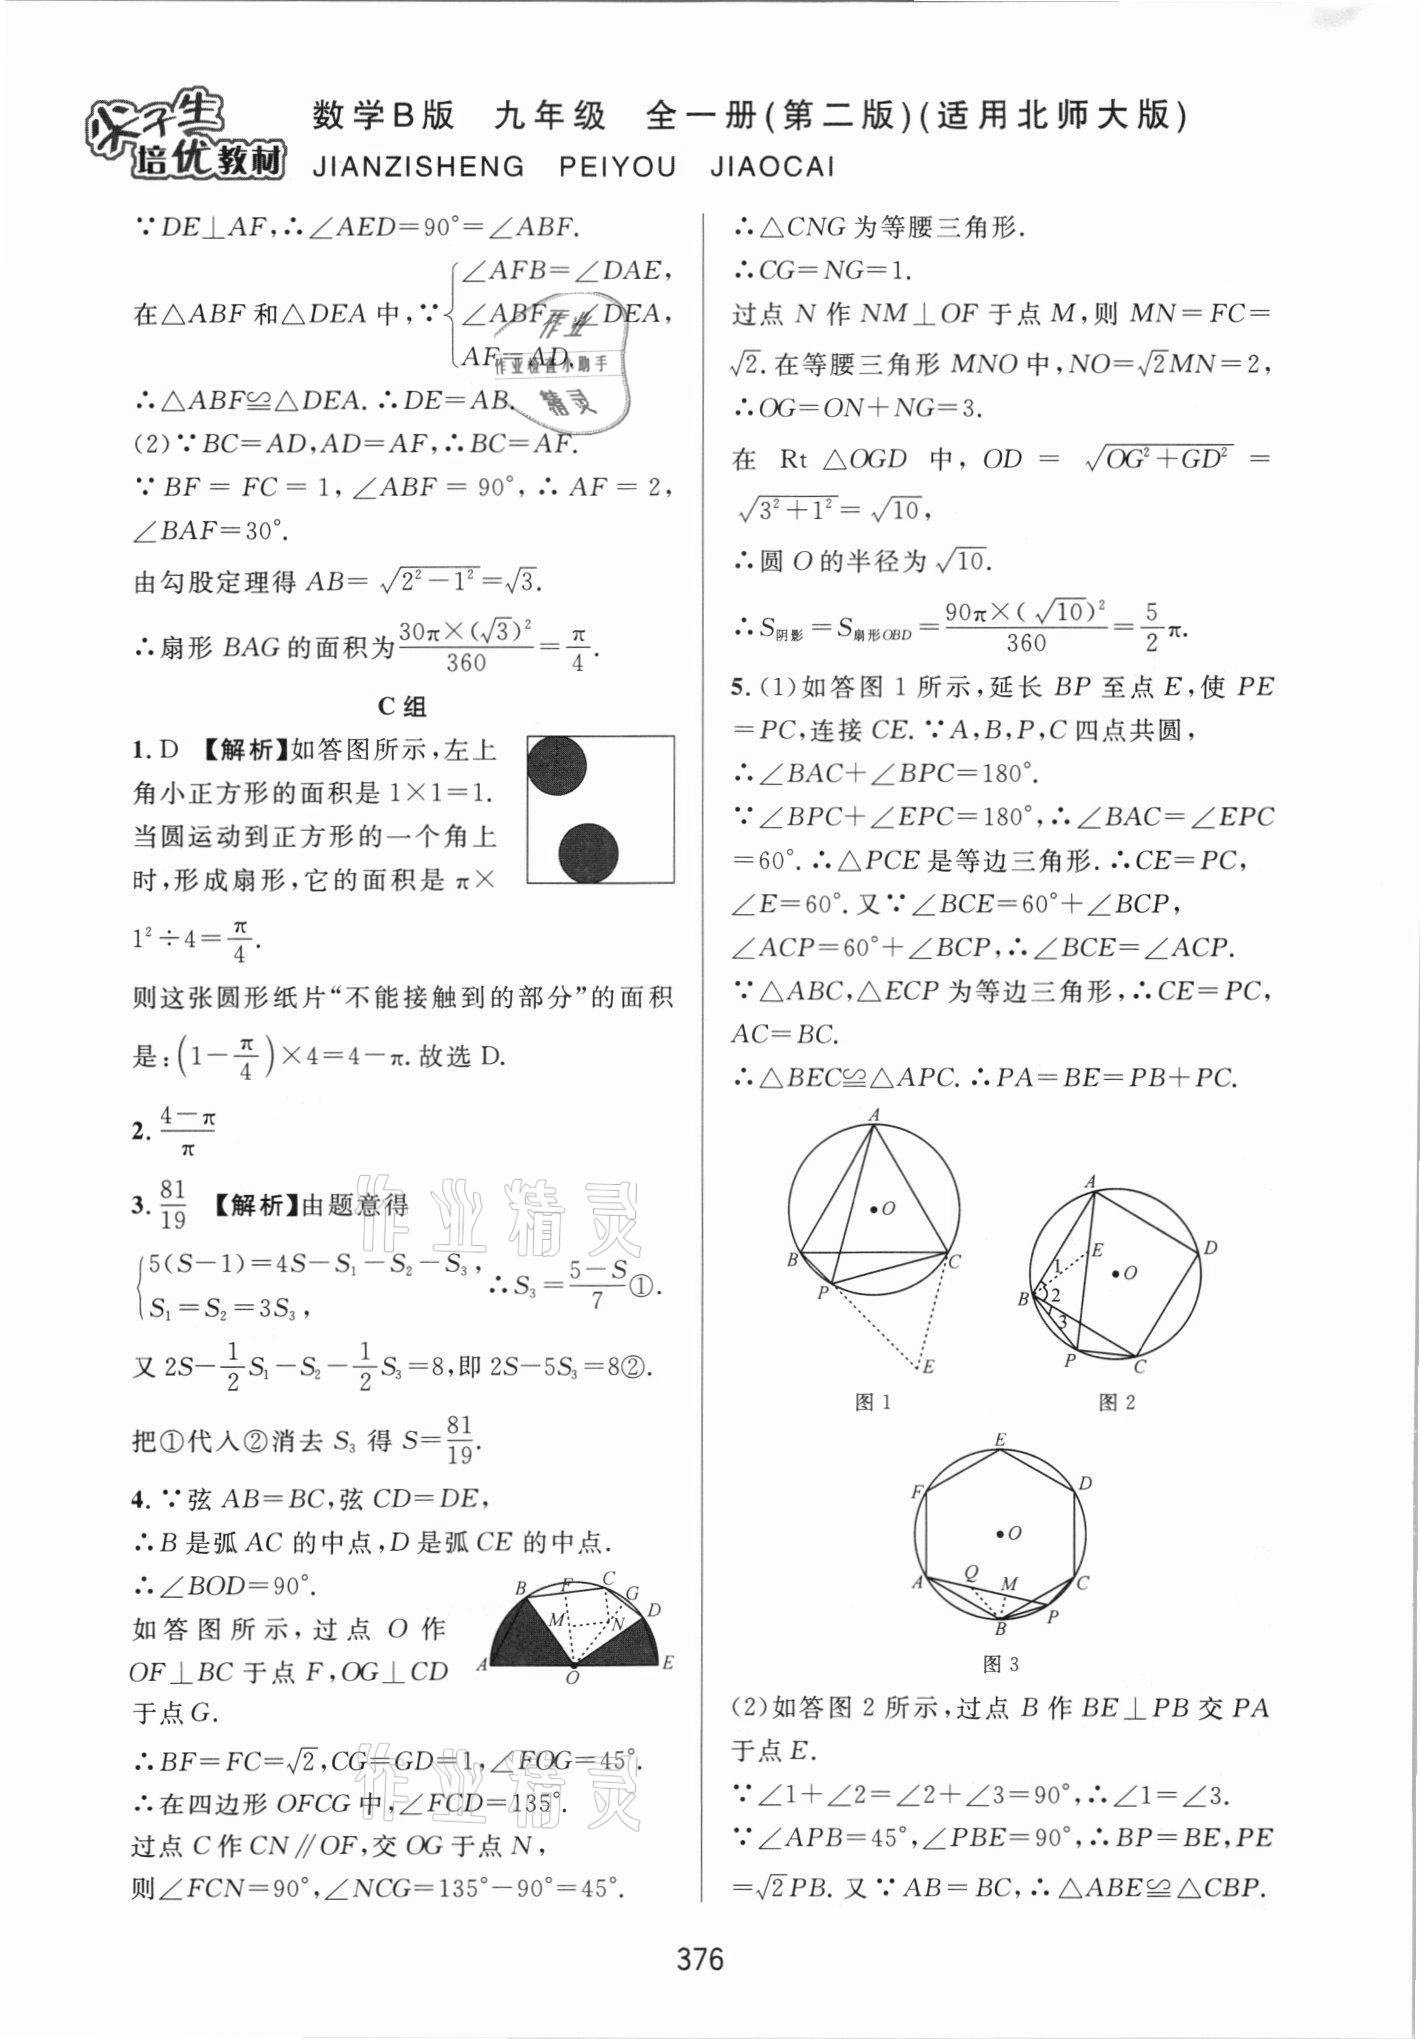 尖子生
培优教材
数学B版 九年级 全一册(第二版)(适用北师大版)
JIANZISHENG PEIYOU JIAOCAI
∵DE⊥AF,∴∠AED=90°=∠ABF.
在△ABF和△DEA中,∵{∠AFB=∠DAE,
∠ABF=∠DEA,
AF=AD,
∴△ABF≌△DEA.∴DE=AB.
(2)∵BC=AD,AD=AF,∴BC=AF.
∵BF=FC=1,∠ABF=90°,∴AF=2,
∠BAF=30°.
由勾股定理得AB=√(2²-1²)=√3.
∴扇形BAG的面积为30π×(√3)²/360=π/4.
C组
1.D 【解析】如答图所示,左上
角小正方形的面积是1×1=1.
当圆运动到正方形的一个角上
时,形成扇形,它的面积是π×
1²÷4=π/4.
则这张圆形纸片“不能接触到的部分”的面积
是:(1-π/4)×4=4-π.故选D.
2.(4-π)/π
3.81/19 【解析】由题意得
{5(S-1)=4S-S₁-S₂-S₃,
S₁=S₂=3S₃,
∴S₃=(5-S)/7①.
又2S-1/2S₁-S₂-1/2S₃=8,即2S-5S₃=8②.
把①代入②消去S₃得S=81/19.
4.∵弦AB=BC,弦CD=DE,
∴B是弧AC的中点,D是弧CE的中点.
∴∠BOD=90°.
如答图所示,过点O作
OF⊥BC于点F,OG⊥CD
于点G.
A B F C G D E M N O
∴BF=FC=√2,CG=GD=1,∠FOG=45°.
∴在四边形OFCG中,∠FCD=135°.
过点C作CN∥OF,交OG于点N,
则∠FCN=90°,∠NCG=135°-90°=45°.
∴△CNG为等腰三角形.
∴CG=NG=1.
过点N作NM⊥OF于点M,则MN=FC=
√2.在等腰三角形MNO中,NO=√2MN=2,
∴OG=ON+NG=3.
在Rt△OGD中,OD=√(OG²+GD²)=
√(3²+1²)=√10,
∴圆O的半径为√10.
∴S阴影=S扇形OBD=90π×(√10)²/360=5/2π.
5.(1)如答图1所示,延长BP至点E,使PE
=PC,连接CE.∵A,B,P,C四点共圆,
∴∠BAC+∠BPC=180°.
∵∠BPC+∠EPC=180°,∴∠BAC=∠EPC
=60°.∴△PCE是等边三角形.∴CE=PC,
∠E=60°.又∵∠BCE=60°+∠BCP,
∠ACP=60°+∠BCP,∴∠BCE=∠ACP.
∵△ABC,△ECP为等边三角形,∴CE=PC,
AC=BC.
∴△BEC≌△APC.∴PA=BE=PB+PC.
A O B C P E
图1
A E D O B 1 2 3 P C
图2
E F D O A Q M C P B
图3
(2)如答图2所示,过点B作BE⊥PB交PA
于点E.
∵∠1+∠2=∠2+∠3=90°,∴∠1=∠3.
∵∠APB=45°,∠PBE=90°,∴BP=BE,PE
=√2PB.又∵AB=BC,∴△ABE≌△CBP.
376
作业
作业检查小助手
精灵
作业精灵
作业精灵